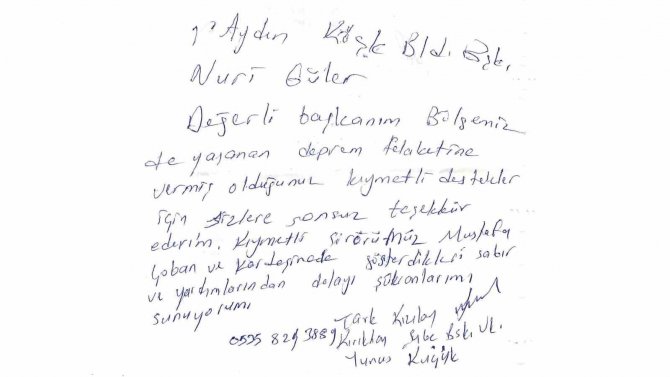 Aydın Köşk Bld. Bşk.
Nuri Güler
Değerli başkanım Bölgemiz
de yaşanan deprem felaketine
vermiş olduğunuz kıymetli destekler
için sizlere sonsuz teşekkür
ederim. Kıymetli şöförümüz Mustafa
Çoban ve Kardeşimede gösterdikleri sabır
ve yardımlarından dolayı şükranlarımı
sunuyorum
Türk Kızılay
0535 829 3889 Kırıkhan Şube Bşk. Vk.
Yunus Küçük